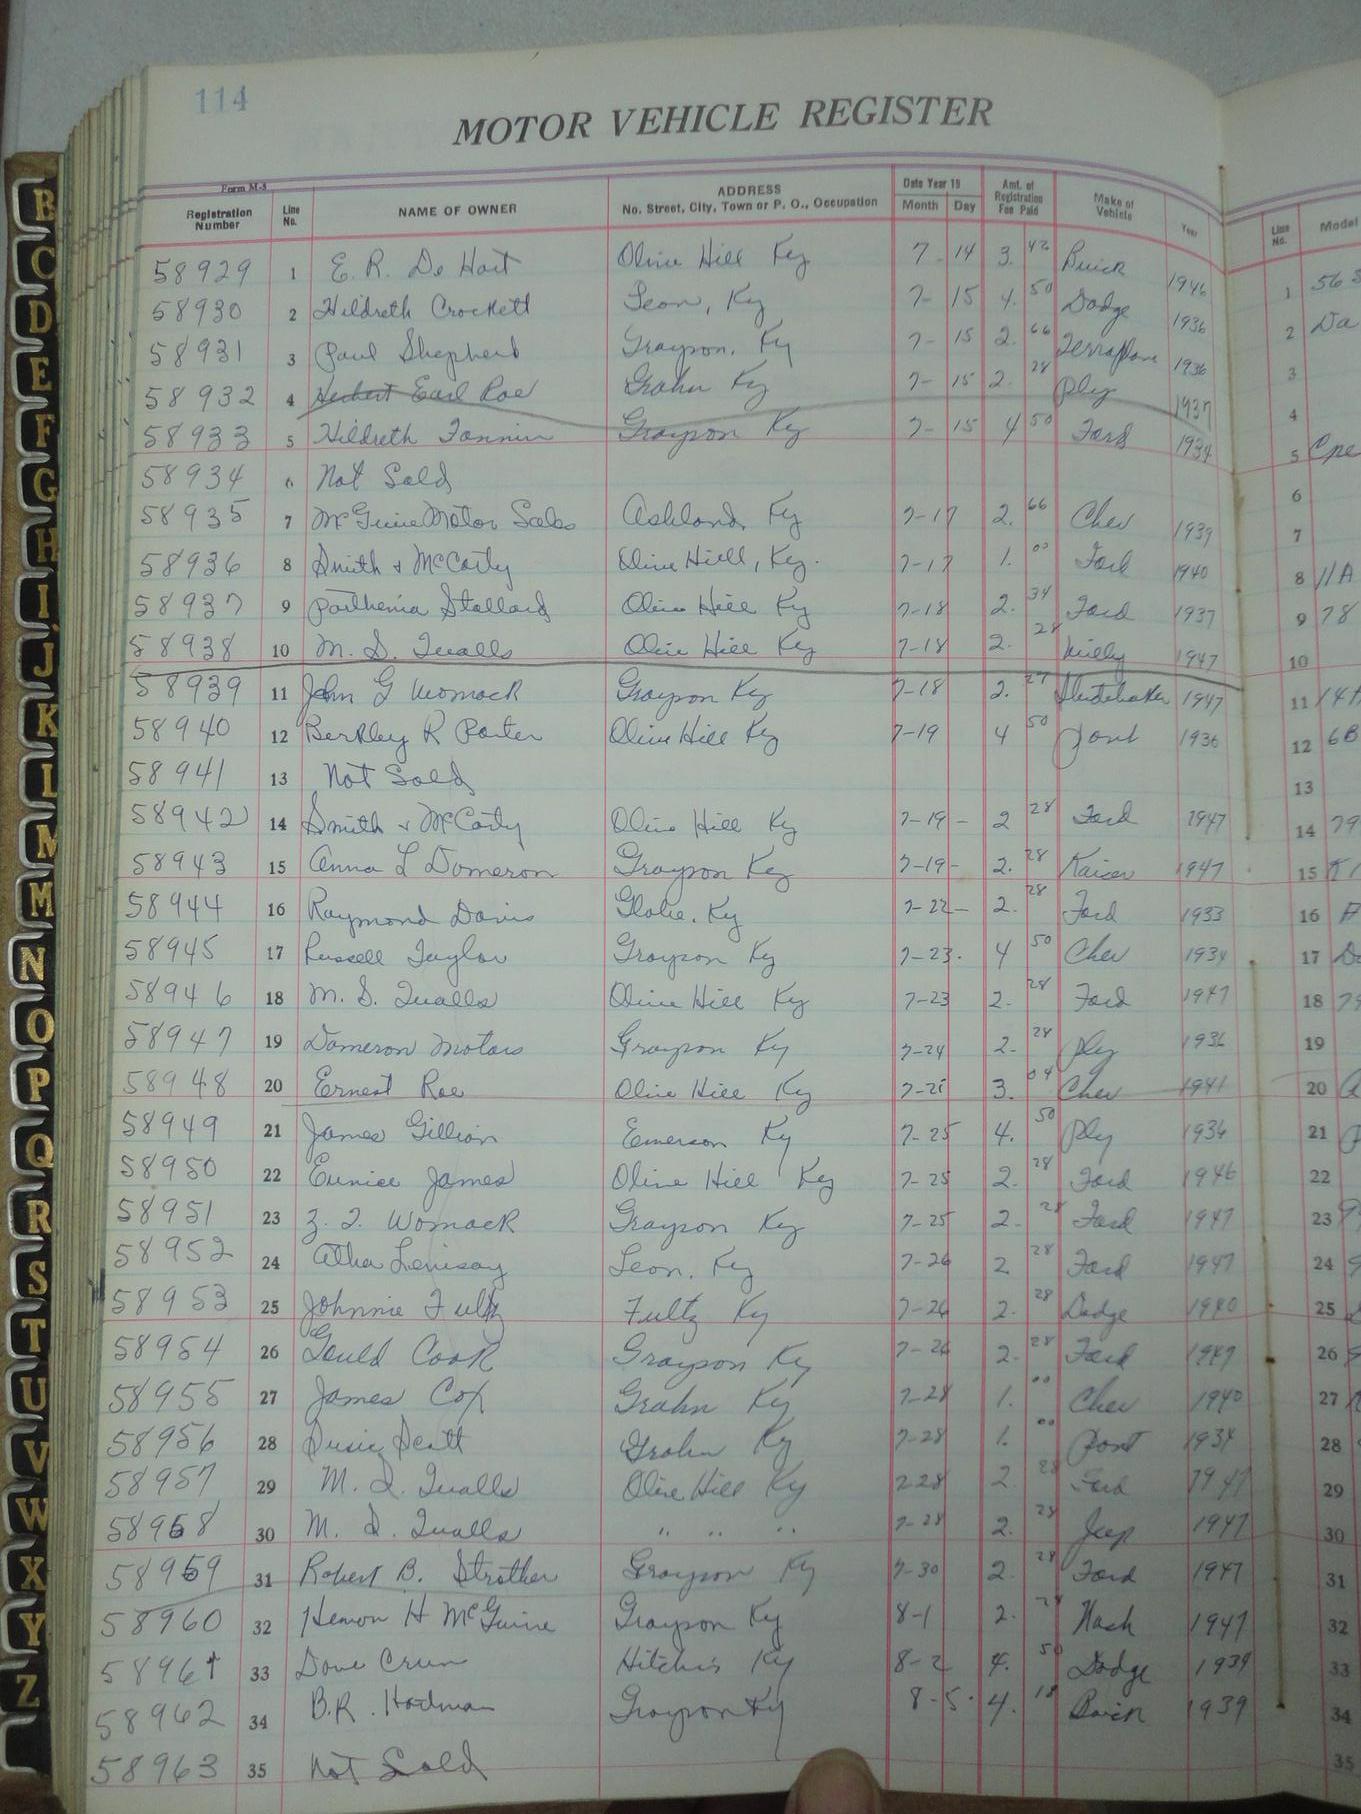 114
MOTOR VEHICLE REGISTER
Form M-8
Registration Number Line No. NAME OF OWNER ADDRESS No. Street, City, Town or P. O., Occupation Date Year 19 Month Day Amt. of Registration Fee Paid Make of Vehicle Year Line No. Model
58929 1 E. R. De Hart Olive Hill Ky 7 - 14 3. 42 Buick 1946 1 56S
58930 2 Hildreth Crockett Leon, Ky 7- 15 4. 50 Dodge 1936 2 Da
58931 3 Paul Shepherd Grayson, Ky 7- 15 2. 66 Terraplane 1936 3
58932 4 Herbert Earl Roe Grahn Ky 7- 15 2. 28 Ply 1937 4
58933 5 Hildreth Fannin Grayson Ky 7- 15 4 50 Ford 1934 5 Cpe
58934 6 Not Sold 6
58935 7 McGuire Motor Sales Ashland, Ky 7-17 2. 66 Chev 1939 7
58936 8 Smith & McCarty Olive Hill, Ky. 7-17 1. 00 Ford 1940 8 11A
58937 9 Parthenia Stallard Olive Hill Ky 7-18 2. 34 Ford 1937 9 78
58938 10 M. S. Qualls Olive Hill Ky 7-18 2. 28 Willy 1947 10
58939 11 John G Womack Grayson Ky 7-18 2. 27 Studebaker 1947 11 14A
58940 12 Berkley R Porter Olive Hill Ky 7-19 4 50 Pont 1936 12 6B
58941 13 Not Sold 13
58942 14 Smith & McCarty Olive Hill Ky 7-19 - 2 28 Ford 1947 14 79
58943 15 Anna L Dameron Grayson Ky 7-19 - 2. 28 Kaiser 1947 15 K1
58944 16 Raymond Davis Globe. Ky 7-22 - 2. 28 Ford 1933 16
58945 17 Russell Taylor Grayson Ky 7-23. 4 50 Chev 1934 17
58946 18 M. S. Qualls Olive Hill Ky 7-23 2. 28 Ford 1947 18 79
58947 19 Dameron Motors Grayson Ky 7-24 2. 28 Ply 1936 19
58948 20 Ernest Roe Olive Hill Ky 3. 04 Chev 1941 20
58949 21 James Gillian Emerson Ky 7-25 4. 50 Ply 1936 21
58950 22 Eunice James Olive Hill Ky 7-25 2. 28 Ford 1946 22
58951 23 Z. T. Womack Grayson Ky 7-25 2. 28 Ford 1947 23
58952 24 Leon. Ky 7-26 2 28 Ford 1947 24
58953 25 Johnnie Fultz Fultz Ky 7-26 2. 28 Dodge 1940 25
58954 26 Gould Cook Grayson Ky 7-26 2. 28 Ford 1947 26
58955 27 James Cox Grahn Ky 7-28 1. 00 Chev 1940 27
58956 28 Susie Scott Grahn Ky 7-28 1. 00 Pont 1934 28
58957 29 M. S. Qualls Olive Hill Ky 7-28 2 28 Ford 1947 29
58958 30 M. S. Qualls " " " 7-28 2. 28 Jeep 1947 30
58959 31 Robert B. Strother Grayson Ky 7-30 2. 28 Ford 1947 31
58960 32 Hemon H McGuire Grayson Ky 8-1 2. 28 Nash 1947 32
58961 33 Dove Crum Hitchis Ky 8-2 4. 50 Dodge 1939 33
58962 34 B.R. Grayson Ky 8-5. 4. 18 Buick 1939 34
58963 35 Not Sold 35
B
C
D
E
F
G
H
I
J
K
L
M
M
N
O
P
Q
R
S
T
U
V
W
X
Y
Z